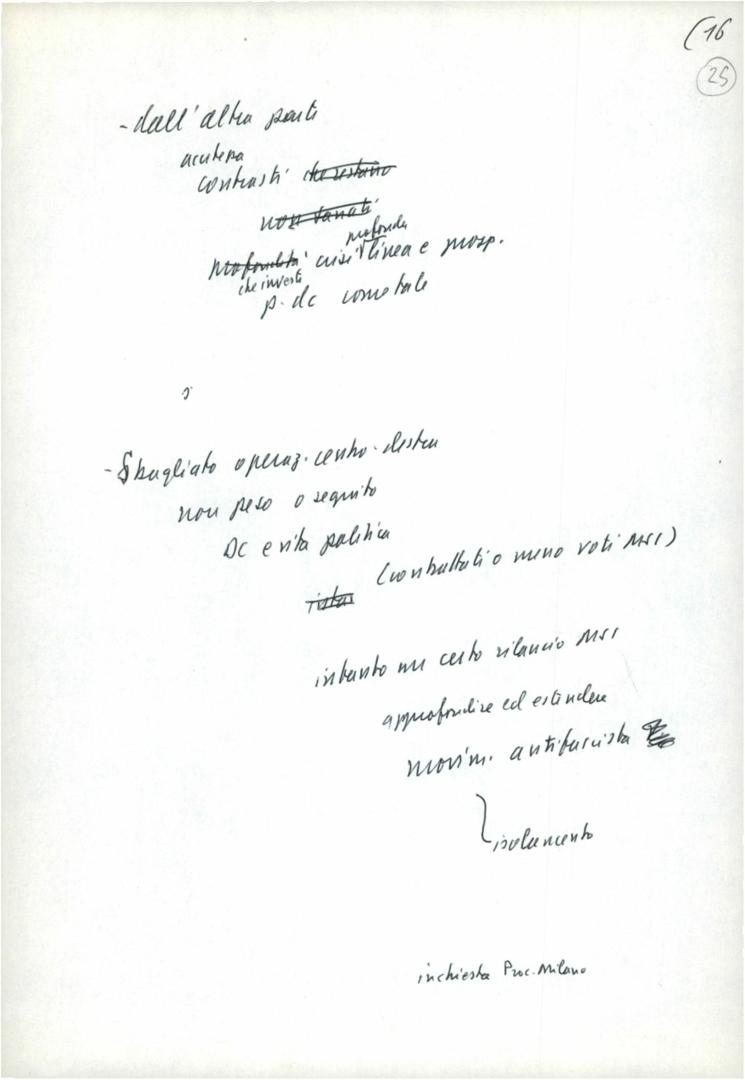 (16
25
- dall'altra parte
acutezza
contrasti che restano
non sanati
profonda
profondità crisi linea e prosp.
che investe
p. dc come tale
- Sbagliato operaz. centro-destra
non peso o seguito
DC e vita politica
(contrattati o meno voti MSI)
intanto un certo rilancio MSI
approfondire ed estendere
movim. antifascista
isolamento
inchiesta Proc. Milano